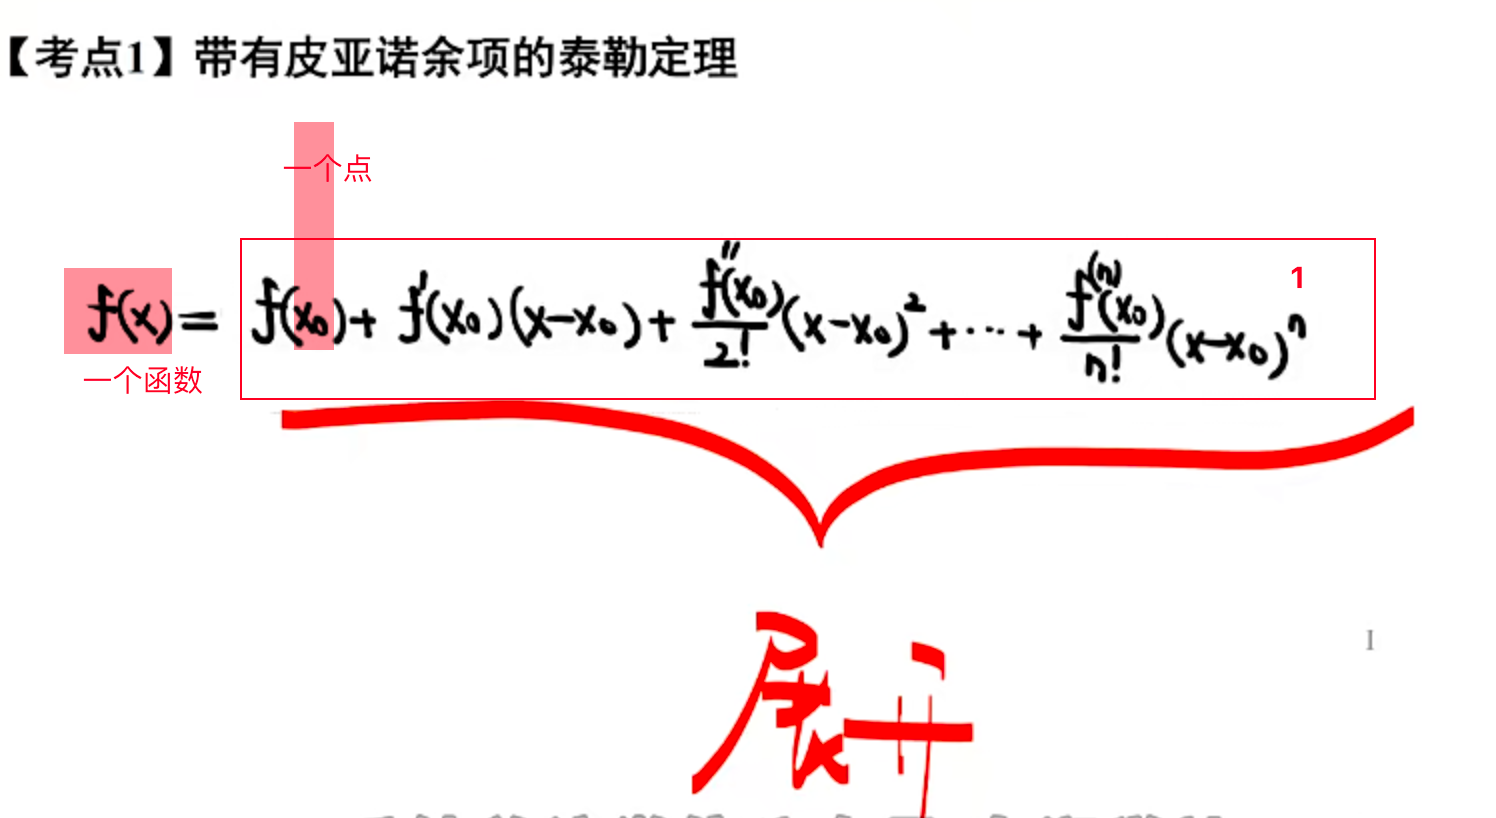 【考点1】带有皮亚诺余项的泰勒定理
一个点
1
f(x) = f(x₀) + f'(x₀)(x-x₀) + f''(x₀)/2! (x-x₀)² + ··· + f⁽ⁿ⁾(x₀)/n! (x-x₀)ⁿ
一个函数
展开